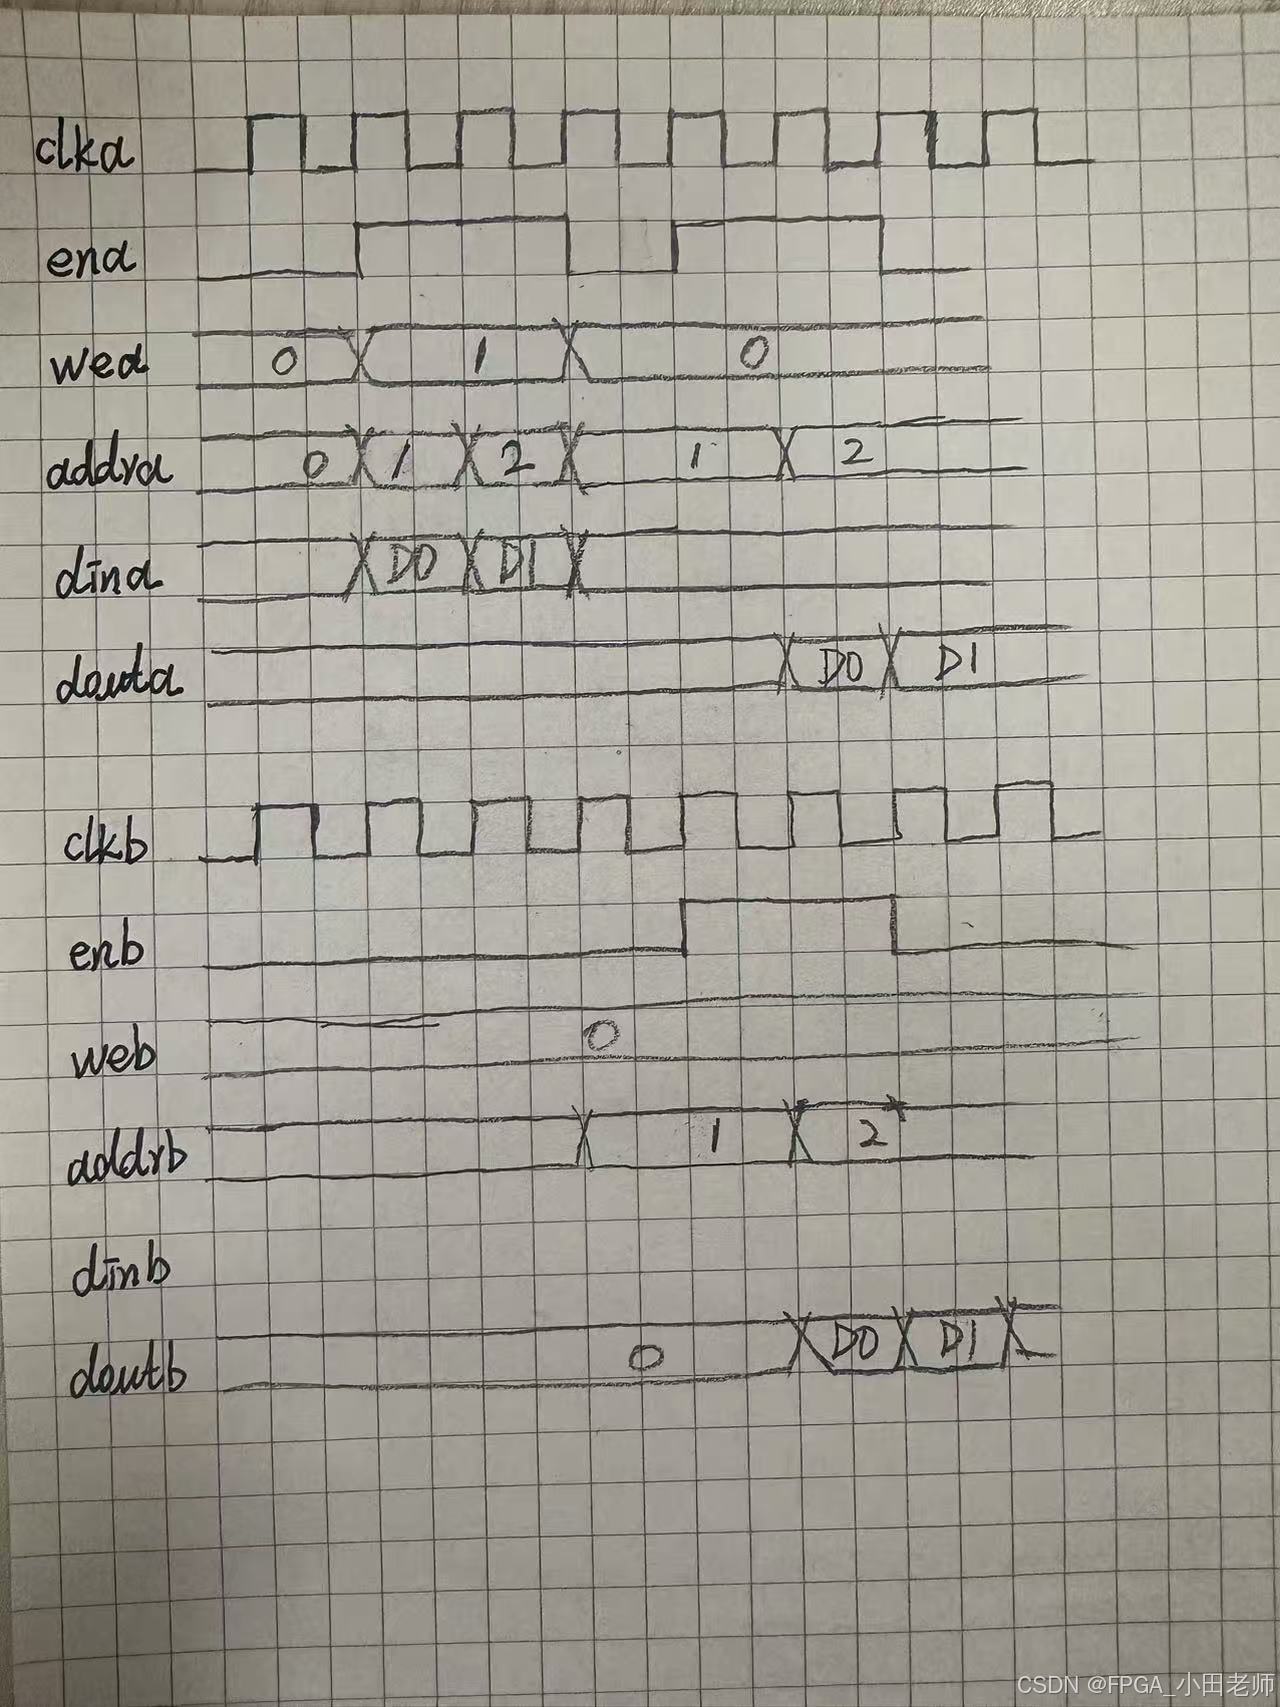 clka
ena
wea 0 1 0
addra 0 1 2 1 2
dina D0 D1
douta D0 D1
clkb
enb
web 0
addrb 1 2
dinb
doutb 0 D0 D1
CSDN @FPGA_小田老师